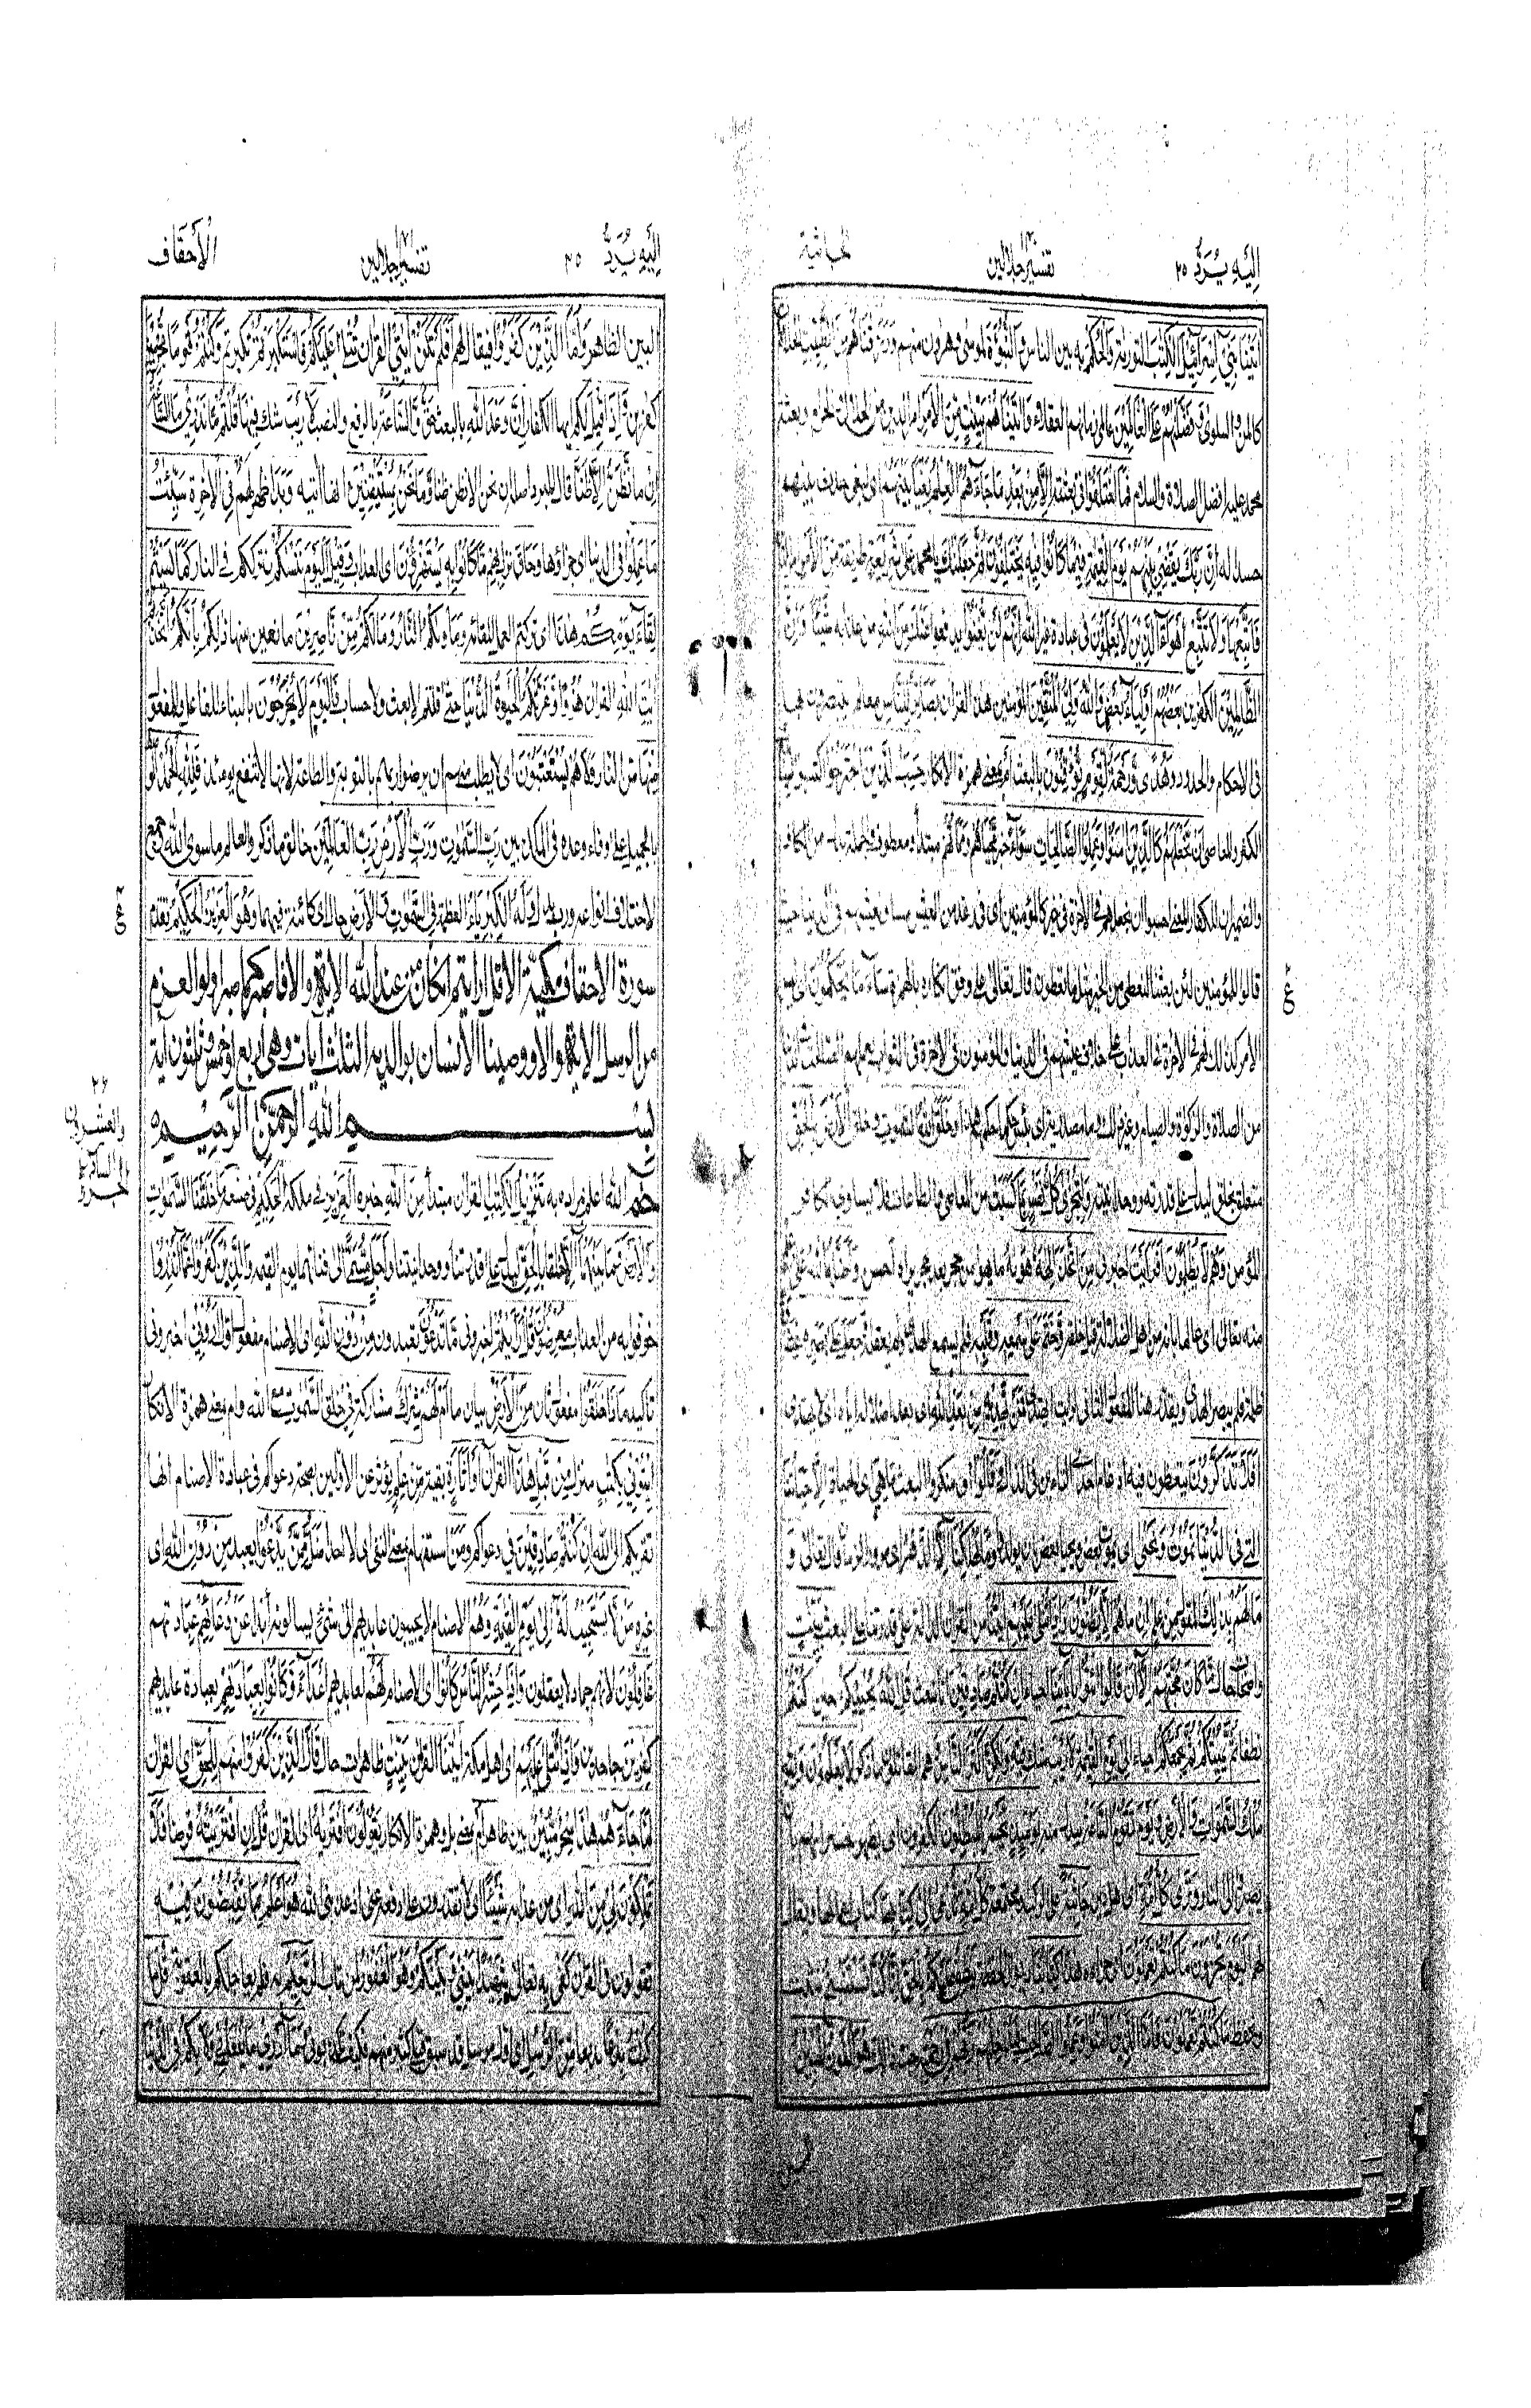 اليه يرد ٢٥ تفسير جلالين الجاثية
اٰتَيْنَا بَنِيْ اِسْرَآئِيْلَ الْكِتٰبَ التورٰىة وَالْحُكْمَ به بين الناس وَالنُّبُوَّةَ لموسى وهرون منهم وَرَزَقْنٰهُمْ مِنَ الطَّيِّبٰتِ الحلالات
كالمن والسلوى وَفَضَّلْنٰهُمْ عَلَى الْعٰلَمِيْنَ عالمي زمانهم العقلاء وَاٰتَيْنٰهُمْ بَيِّنٰتٍ مِنَ الْاَمْرِ امر الدين من الحلال والحرام وبعثة
محمد عليه افضل الصلاة والسلام فَمَا اخْتَلَفُوْا في بعثته اِلَّا مِنْ بَعْدِ مَا جَآءَهُمُ الْعِلْمُ بَغْيًا بَيْنَهُمْ اى لبغى حدث بينهم
حسدا له اِنَّ رَبَّكَ يَقْضِيْ بَيْنَهُمْ يَوْمَ الْقِيٰمَةِ فِيْمَا كَانُوْا فِيْهِ يَخْتَلِفُوْنَ ثُمَّ جَعَلْنٰكَ يا محمد عَلٰى شَرِيْعَةٍ طريقة مِنَ الْاَمْرِ امر الدين
فَاتَّبِعْهَا وَلَا تَتَّبِعْ اَهْوَآءَ الَّذِيْنَ لَا يَعْلَمُوْنَ في عبادة غير الله اِنَّهُمْ لَنْ يُغْنُوْا يدفعوا عَنْكَ مِنَ اللهِ من عذابه شَيْئًا وَاِنَّ
الظّٰلِمِيْنَ الكفرين بَعْضُهُمْ اَوْلِيَآءُ بَعْضٍ وَاللهُ وَلِيُّ الْمُتَّقِيْنَ المؤمنين هٰذَا القران بَصَآئِرُ لِلنَّاسِ معالم يتبصرون بها
في الاحكام والحدود وَهُدًى وَرَحْمَةٌ لِقَوْمٍ يُوْقِنُوْنَ بالبعث اَمْ بمعنى همزة الانكار حَسِبَ الَّذِيْنَ اجْتَرَحُوا اكتسبوا السَّيِّاٰتِ
الكفر والمعاصى اَنْ نَجْعَلَهُمْ كَالَّذِيْنَ اٰمَنُوْا وَعَمِلُوا الصّٰلِحٰتِ سَوَآءً خبر مَحْيَاهُمْ وَمَمَاتُهُمْ مبتدأ ومعطوف والجملة بدل من الكاف
والضميران للكفار المعنى احسبوا ان نجعلهم في الاخرة في خير كالمؤمنين اى في رغد من العيش مساو لعيشهم في الدنيا حيث
قالوا للمؤمنين لئن بعثنا لنعطى من الخير مثل ما تعطون قال تعالى على وفق انكاره بالهمزة سَآءَ مَا يَحْكُمُوْنَ اى ليس
الامر كذلك فهم في الاخرة في العذاب على خلاف عيشهم في الدنيا والمؤمنون في الاخرة في الثواب بعملهم الصالحات في الدنيا
من الصلاة والزكوٰة والصيام وغير ذلك وما مصدرية اى بئس حكما حكمهم هذا وَخَلَقَ اللهُ السَّمٰوٰتِ وَ خلق الْاَرْضَ بِالْحَقِّ
متعلق بخلق ليدل على قدرته ووحدانيته وَلِتُجْزٰى كُلُّ نَفْسٍ بِمَا كَسَبَتْ من المعاصى والطاعات فلا يساوى الكافر
المؤمن وَهُمْ لَا يُظْلَمُوْنَ اَفَرَءَيْتَ اخبرنى مَنِ اتَّخَذَ اِلٰهَهٗ هَوٰىهُ ما يهواه من حجر بعد حجر يراه احسن وَاَضَلَّهُ اللهُ عَلٰى عِلْمٍ
منه تعالى اى عالما بانه من اهل الضلالة قبل خلقه وَخَتَمَ عَلٰى سَمْعِهٖ وَقَلْبِهٖ فلم يسمع الهدى ولم يعقله وَجَعَلَ عَلٰى بَصَرِهٖ غِشٰوَةً
ظلمة فلم يبصر الهدى ويقدر هنا المفعول الثاني لرأيت ايهتدى فَمَنْ يَهْدِيْهِ مِنْ بَعْدِ اللهِ اى بعد اضلاله اياه اى لا يهتدى
اَفَلَا تَذَكَّرُوْنَ تتعظون فيه ادغام احدى التاءين في الذال وَقَالُوْا اى منكروا البعث مَا هِيَ اى الحياة اِلَّا حَيَاتُنَا
التى في الدُّنْيَا نَمُوْتُ وَنَحْيَا اى يموت بعض ويحيا بعض بان يولدوا وَمَا يُهْلِكُنَا اِلَّا الدَّهْرُ اى مرور الزمان قال تعالى وَ
مَا لَهُمْ بِذٰلِكَ المقول مِنْ عِلْمٍ اِنْ ما هُمْ اِلَّا يَظُنُّوْنَ وَاِذَا تُتْلٰى عَلَيْهِمْ اٰيٰتُنَا من القران الدالة على قدرتنا على البعث بَيِّنٰتٍ
واضحات حال مَا كَانَ حُجَّتَهُمْ اِلَّا اَنْ قَالُوا ائْتُوْا بِاٰبَآئِنَا احياء اِنْ كُنْتُمْ صٰدِقِيْنَ انا نبعث قُلِ اللهُ يُحْيِيْكُمْ حين كنتم
نطفا ثُمَّ يُمِيْتُكُمْ ثُمَّ يَجْمَعُكُمْ احياء اِلٰى يَوْمِ الْقِيٰمَةِ لَا رَيْبَ شك فِيْهِ وَلٰكِنَّ اَكْثَرَ النَّاسِ وهم القائلون ما ذكر لَا يَعْلَمُوْنَ وَلِلّٰهِ
مُلْكُ السَّمٰوٰتِ وَالْاَرْضِ وَيَوْمَ تَقُوْمُ السَّاعَةُ يبدل منه يَوْمَئِذٍ يَخْسَرُ الْمُبْطِلُوْنَ الكفرون اى يظهر خسرانهم بان
يصيروا الى النار وَتَرٰى كُلَّ اُمَّةٍ اى اهل دين جَاثِيَةً على الركب او مجتمعة كُلُّ اُمَّةٍ تُدْعٰى اِلٰى كِتٰبِهَا كتاب اعمالها ويقال
لهم اَلْيَوْمَ تُجْزَوْنَ مَا كُنْتُمْ تَعْمَلُوْنَ اى جزاءه هٰذَا كِتٰبُنَا ديوان الحفظة يَنْطِقُ عَلَيْكُمْ بِالْحَقِّ اِنَّا كُنَّا نَسْتَنْسِخُ نثبت
ونحفظ مَا كُنْتُمْ تَعْمَلُوْنَ فَاَمَّا الَّذِيْنَ اٰمَنُوْا وَعَمِلُوا الصّٰلِحٰتِ فَيُدْخِلُهُمْ رَبُّهُمْ فِيْ رَحْمَتِهٖ جنته ذٰلِكَ هُوَ الْفَوْزُ الْمُبِيْنُ
اليه يرد ٢٥ تفسير جلالين الاحقاف
البين الظاهر وَاَمَّا الَّذِيْنَ كَفَرُوْا فيقال لهم اَفَلَمْ تَكُنْ اٰيٰتِيْ القران تُتْلٰى عَلَيْكُمْ فَاسْتَكْبَرْتُمْ تكبرتم وَكُنْتُمْ قَوْمًا مُجْرِمِيْنَ
كفرين وَاِذَا قِيْلَ لكم ايها الكفار اِنَّ وَعْدَ اللهِ بالبعث حَقٌّ وَالسَّاعَةُ بالرفع والنصب لَا رَيْبَ شك فِيْهَا قُلْتُمْ مَا نَدْرِيْ مَا السَّاعَةُ
اِنْ ما نَظُنُّ اِلَّا ظَنًّا قال المبرد اصله ان نحن الا نظن ظنا وَمَا نَحْنُ بِمُسْتَيْقِنِيْنَ انها اٰتية وَبَدَا ظهر لَهُمْ في الاخرة سَيِّاٰتُ
مَا عَمِلُوْا في الدنيا اى جزاؤها وَحَاقَ نزل بِهِمْ مَّا كَانُوْا بِهٖ يَسْتَهْزِءُوْنَ اى العذاب وَقِيْلَ الْيَوْمَ نَنْسٰكُمْ نترككم في النار كَمَا نَسِيْتُمْ
لِقَآءَ يَوْمِكُمْ هٰذَا اى تركتم العمل للقائه وَمَاْوٰىكُمُ النَّارُ وَمَا لَكُمْ مِّنْ نّٰصِرِيْنَ مانعين منها ذٰلِكُمْ بِاَنَّكُمُ اتَّخَذْتُمْ
اٰيٰتِ اللهِ القران هُزُوًا وَغَرَّتْكُمُ الْحَيٰوةُ الدُّنْيَا حتى قلتم لا بعث ولا حساب فَالْيَوْمَ لَا يُخْرَجُوْنَ بالبناء للفاعل والمفعول
مِنْهَا من النار وَلَا هُمْ يُسْتَعْتَبُوْنَ اى لا يطلب منهم ان يرضوا ربهم بالتوبة والطاعة لانها لا تنفع يومئذ فَلِلّٰهِ الْحَمْدُ الوصف
بالجميل على وفاء وعده في المكذبين رَبِّ السَّمٰوٰتِ وَرَبِّ الْاَرْضِ رَبِّ الْعٰلَمِيْنَ خالق ما ذكر والعالم ما سوى الله وجمع
لاختلاف انواعه ورب بدل وَلَهُ الْكِبْرِيَآءُ العظمة فِي السَّمٰوٰتِ وَالْاَرْضِ حال اى كائنة فيهما وَهُوَ الْعَزِيْزُ الْحَكِيْمُ تقدم
سورة الاحقاف مكية الا قل ارايتم ان كان من عند الله الاية والا فاصبر كما صبر اولوا العزم
من الرسل الاية والا ووصينا الانسان بوالديه الثلث ايات وهى اربع او خمس وثلثون اٰية
بسم الله الرحمن الرحيم
حٰمٓ الله اعلم بمراده به تَنْزِيْلُ الْكِتٰبِ القران مبتدأ مِنَ اللهِ خبره الْعَزِيْزِ في ملكه الْحَكِيْمِ في صنعه مَا خَلَقْنَا السَّمٰوٰتِ
وَالْاَرْضَ وَمَا بَيْنَهُمَا اِلَّا خلقا بِالْحَقِّ ليدل على قدرتنا ووحدانيتنا وَاَجَلٍ مُّسَمًّى الى فنائهما يوم القيمة وَالَّذِيْنَ كَفَرُوْا عَمَّا اُنْذِرُوْا
خوفوا به من العذاب مُعْرِضُوْنَ قُلْ اَرَءَيْتُمْ اخبرونى مَّا تَدْعُوْنَ تعبدون مِنْ دُوْنِ اللهِ اى الاصنام مفعول اول اَرُوْنِيْ اخبرونى
تاكيد مَاذَا خَلَقُوْا مفعول ثان مِنَ الْاَرْضِ بيان ما اَمْ لَهُمْ شِرْكٌ مشاركة فِي خلق السَّمٰوٰتِ مع الله وام بمعنى همزة الانكار
اِيْتُوْنِيْ بِكِتٰبٍ منزل مِّنْ قَبْلِ هٰذَا القران اَوْ اَثٰرَةٍ بقية مِّنْ عِلْمٍ يؤثر عن الاولين بصحة دعوكم في عبادة الاصنام انها
تقربكم الى الله اِنْ كُنْتُمْ صٰدِقِيْنَ في دعوكم وَمَنْ استفهام بمعنى النفى اى لا احد اَضَلُّ مِمَّنْ يَّدْعُوْا يعبد مِنْ دُوْنِ اللهِ اى
غيره مَنْ لَّا يَسْتَجِيْبُ لَهٗٓ اِلٰى يَوْمِ الْقِيٰمَةِ وَهُمْ الاصنام لا يجيبون عابديهم الى شئ يسالونه ابدا عَنْ دُعَآئِهِمْ عبادتهم
غٰفِلُوْنَ لانهم جماد لا يعقلون وَاِذَا حُشِرَ النَّاسُ كَانُوْا اى الاصنام لَهُمْ لعابديهم اَعْدَآءً وَّكَانُوْا بِعِبَادَتِهِمْ بعبادة عابديهم
كٰفِرِيْنَ جاحدين وَاِذَا تُتْلٰى عَلَيْهِمْ اى اهل مكة اٰيٰتُنَا القران بَيِّنٰتٍ ظاهرات حال قَالَ الَّذِيْنَ كَفَرُوْا منهم لِلْحَقِّ اى القران
لَمَّا جَآءَهُمْ هٰذَا سِحْرٌ مُّبِيْنٌ بين ظاهر اَمْ بمعنى بل وهمزة الانكار يَقُوْلُوْنَ افْتَرٰىهُ اى القران قُلْ اِنِ افْتَرَيْتُهٗ فرضا فَلَا
تَمْلِكُوْنَ لِيْ مِنَ اللهِ اى من عذابه شَيْئًا اى لا تقدرون على دفعه عنى اذا عذبنى الله هُوَ اَعْلَمُ بِمَا تُفِيْضُوْنَ فِيْهِ
تقولون في القران كَفٰى بِهٖ تعالى شَهِيْدًا بَيْنِيْ وَبَيْنَكُمْ وَهُوَ الْغَفُوْرُ لمن تاب الرَّحِيْمُ به فلم يعاجلكم بالعقوبة قُلْ مَا
كُنْتُ بِدْعًا بديعا مِّنَ الرُّسُلِ اى اول مرسل قد سبق قبلى كثير منهم فكيف تكذبونى وَمَآ اَدْرِيْ مَا يُفْعَلُ بِيْ وَلَا بِكُمْ في الدنيا
ع
ع
٢٦
الجزء السادس والعشرون